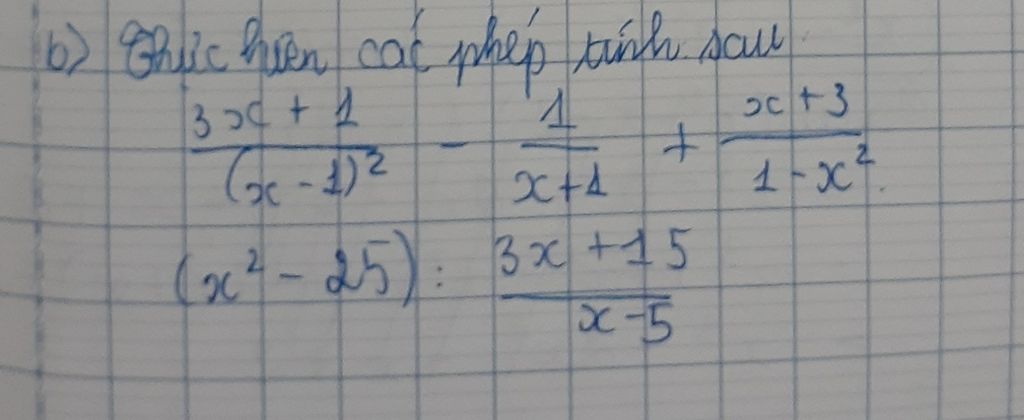 b) Thực hiện các phép tính sau
3x + 1 / (x - 1)² - 1 / x + 1 + x + 3 / 1 - x².
(x² - 25) : 3x + 15 / x - 5